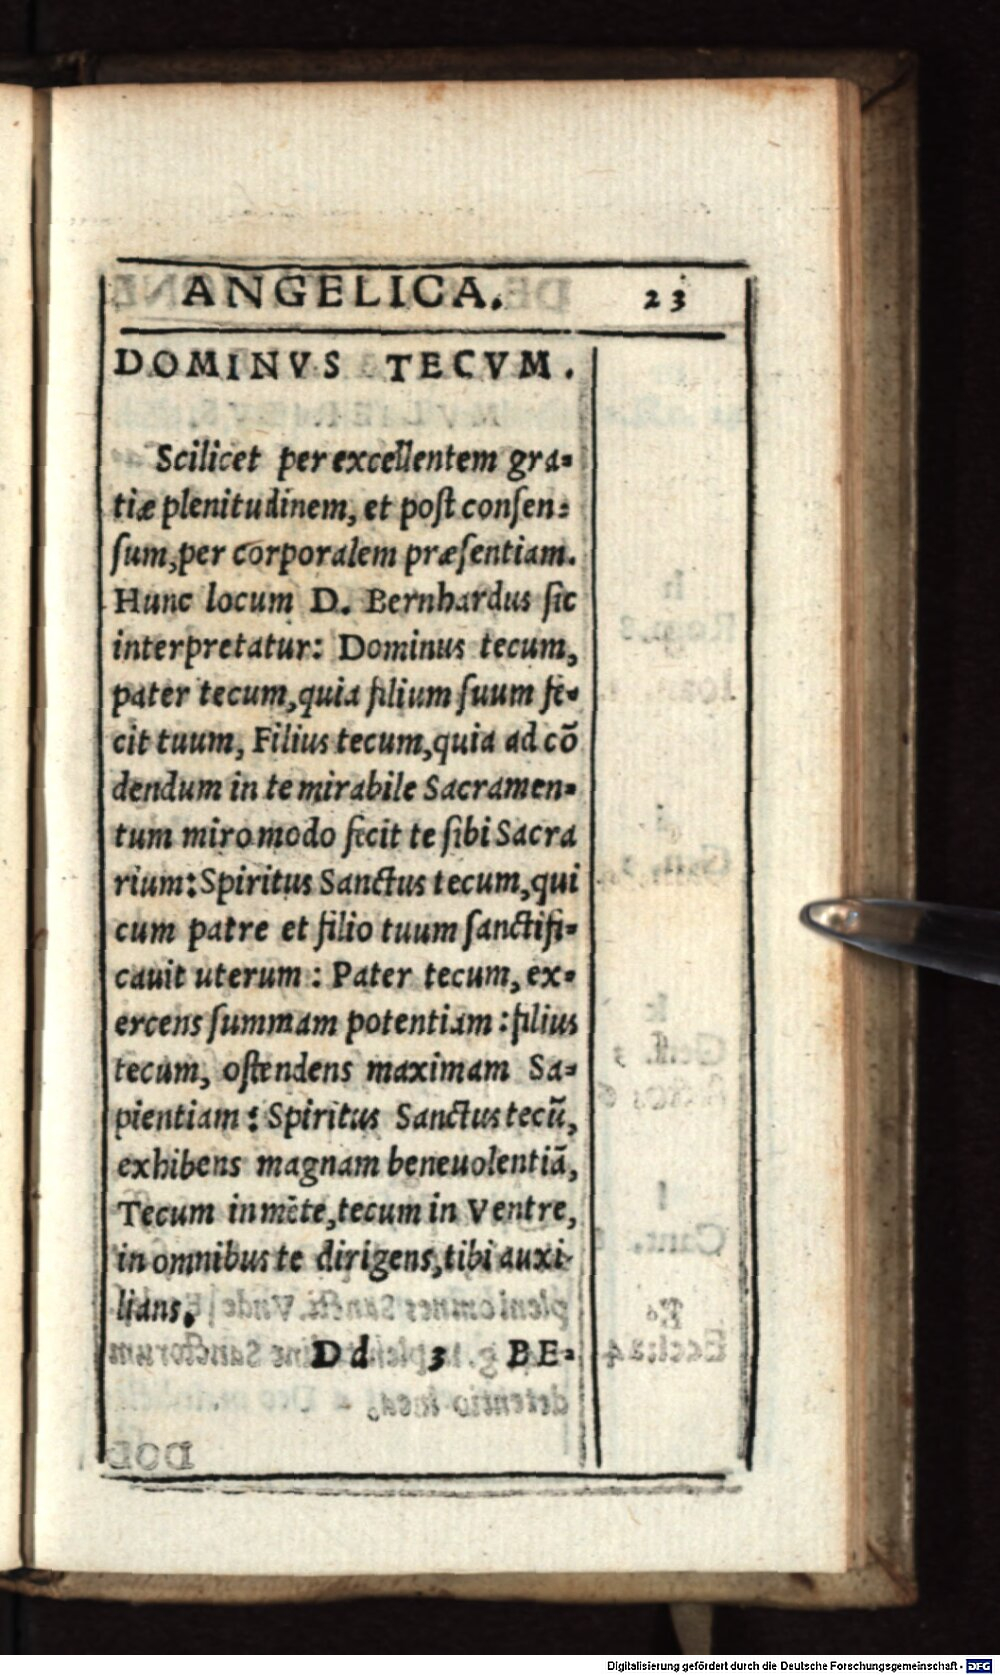 ANGELICA. 23
DOMINVS TECVM.
Scilicet per excellentem gra-
tiæ plenitudinem, et poſt conſen-
ſum, per corporalem præſentiam.
Hunc locum D. Bernhardus ſic
interpretatur: Dominus tecum,
pater tecum, quia filium ſuum fe-
cit tuum, Filius tecum, quia ad cō
dendum in te mirabile Sacramen-
tum miro modo fecit te ſibi Sacra
rium: Spiritus Sanctus tecum, qui
cum patre et filio tuum ſanctifi-
cauit uterum: Pater tecum, ex-
ercens ſummam potentiam: filius
tecum, oſtendens maximam Sa-
pientiam: Spiritus Sanctus tecū,
exhibens magnam beneuolentiā,
Tecum in mēte, tecum in Ventre,
in omnibus te dirigens, tibi auxi-
lians.
Dd 3 BE-
Digitalisierung gefördert durch die Deutsche Forschungsgemeinschaft - DFG